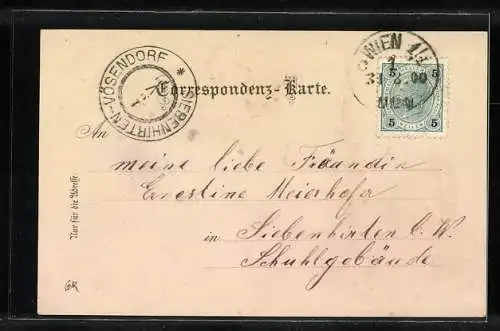 SIEBENHIRTEN-VÖSENDORF *
WIEN 1/1
1
5 5
5 5
Correspondenz-Karte.
An
meine liebe Fräundin
Ernestine Meierhofer
in Siebenhirten b. W.
Schuhlgebäude
Nur für die Adresse